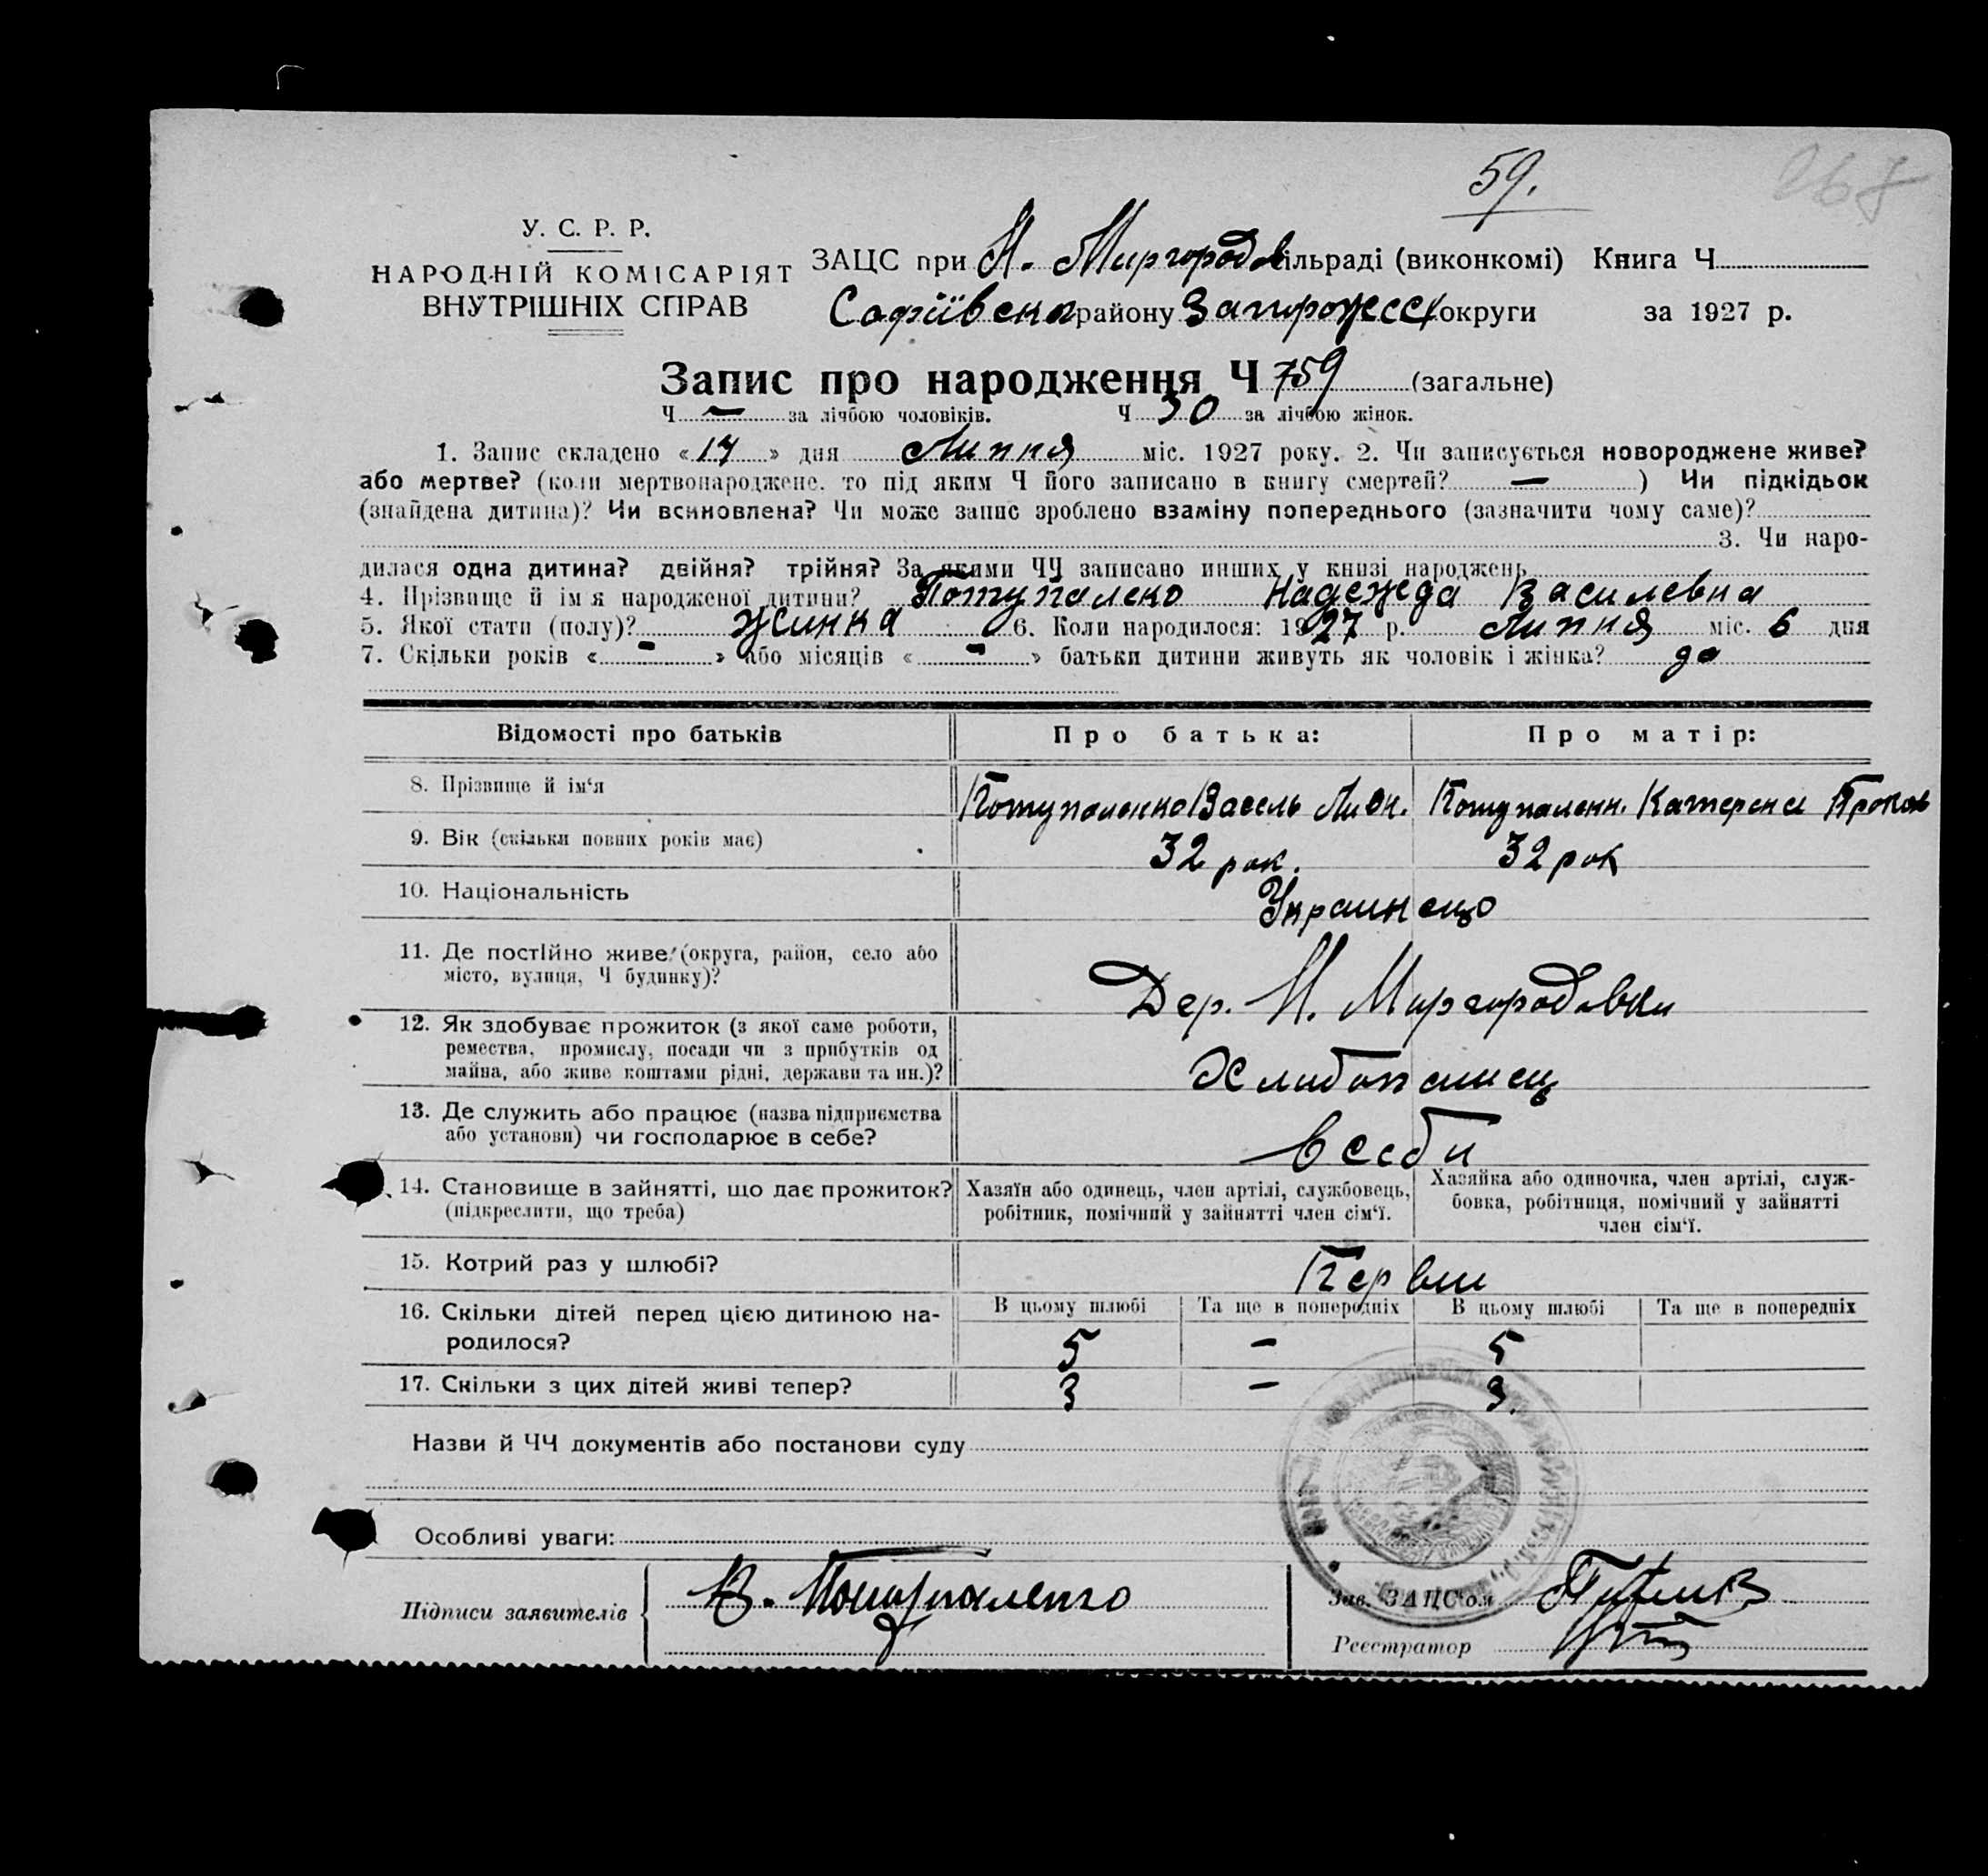 59.
268
У. С. Р. Р.
НАРОДНІЙ КОМІСАРІЯТ
ВНУТРІШНІХ СПРАВ
ЗАЦС при Н. Миргородв сільраді (виконкомі) Книга Ч
Софіївськ району Запорожсс округи за 1927 р.
Запис про народження Ч 759 (загальне)
Ч — за лічбою чоловіків. Ч 30 за лічбою жінок.
1. Запис складено «14» дня Липня міс. 1927 року. 2. Чи записується новороджене живе?
або мертве? (коли мертвонароджене. то під яким Ч його записано в книгу смертей? — ) Чи підкідьок
(знайдена дитина)? Чи всиновлена? Чи може запис зроблено взаміну попереднього (зазначити чому саме)?
3. Чи наро-
дилася одна дитина? двійня? трійня? За якими ЧЧ записано инших у книзі народжень
4. Прізвище й імя народженої дитини? Потупалеко Надежеда Василевна
5. Якої стати (полу)? жинка 6. Коли народилося: 1927 р. Липня міс. 6 дня
7. Скільки років « - » або місяців « - » батьки дитини живуть як чоловік і жінка? да
Відомості про батьків Про батька: Про матір:
8. Прізвище й ім‘я Потупаленко Васель Лион. Потупаленк. Катерена Проков
9. Вік (скільки повних років має) 32 рок. 32 рок
10. Національність Украинецо
11. Де постійно живе (округа, район, село або
місто, вулиця, Ч будинку)? Дер. Н. Миргородовки
12. Як здобуває прожиток (з якої саме роботи,
ремества, промислу, посади чи з прибутків од
майна, або живе коштами рідні, держави та ин.)? Хлибопашец
13. Де служить або працює (назва підприємства
або установи) чи господарює в себе? в себи
14. Становище в зайнятті, що дає прожиток? Хазяїн або одинець, член артілі, службовець, Хазяйка або одиночка, член артілі, служ-
(підкреслити, що треба) робітник, помічний у зайнятті член сім‘ї. бовка, робітниця, помічний у зайнятті
член сім‘ї.
15. Котрий раз у шлюбі? Первый
16. Скільки дітей перед цією дитиною на- В цьому шлюбі Та ще в попередніх В цьому шлюбі Та ще в попередніх
родилося? 5 — 5
17. Скільки з цих дітей живі тепер? 3 — 3.
Назви й ЧЧ документів або постанови суду
Особливі уваги:
Підписи заявителів В. Потупаленко Зав. ЗАЦС‘ом
Реєстратор